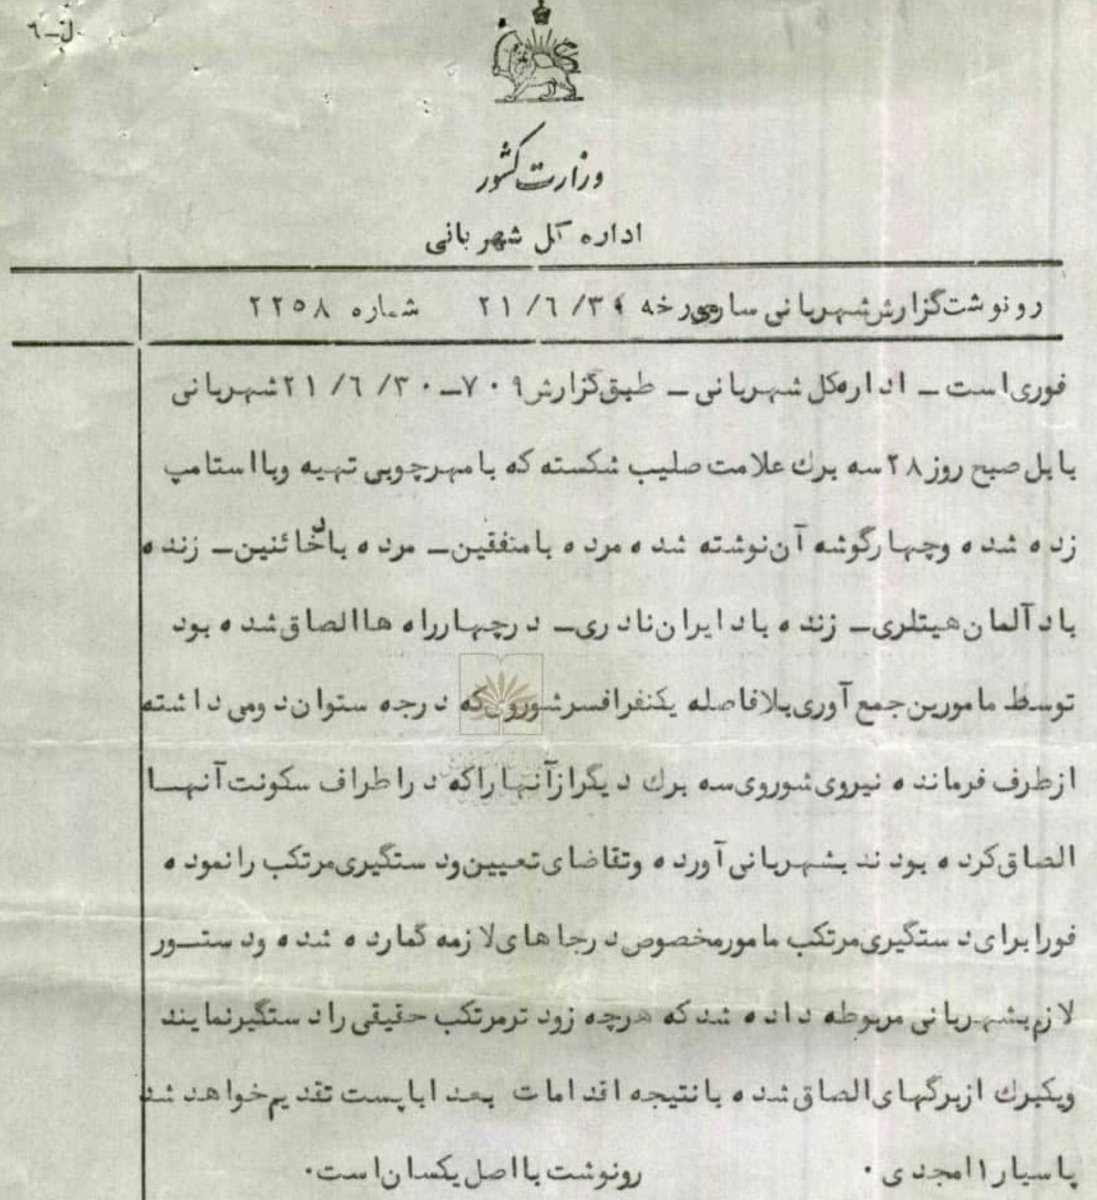 ل-٦
وزارت کشور
اداره کل شهربانی
رونوشت گزارش شهربانی ساری مورخه ۲۱/٦/۳۰ شماره ۲۲۵۸
فوری است - اداره کل شهربانی - طبق گزارش ۷۰۹-۲۱/٦/۳۰ شهربانی
بابل صبح روز ۲۸ سه برك علامت صلیب شکسته که با مهر چوبی تهیه و با استامپ
زده شده و چهار گوشه آن نوشته شده مرده با متفقین - مرده باد خائنین - زنده
باد آلمان هیتلری - زنده باد ایران نادری - در چهار راه ها الصاق شده بود
توسط مامورین جمع آوری بلافاصله یکنفر افسر شوروی که درجه ستوان دومی داشته
از طرف فرمانده نیروی شوروی سه برك دیگر از آنها را که در اطراف سکونت آنها
الصاق کرده بودند بشهربانی آورده و تقاضای تعیین و دستگیری مرتکب را نموده
فورا برای دستگیری مرتکب مامور مخصوص در جاهای لازمه گمارده شده و دستور
لازم بشهربانی مربوطه داده شد که هرچه زودتر مرتکب حقیقی را دستگیر نمایند
ویکبرك از برگهای الصاق شده با نتیجه اقدامات بعدا با پست تقدیم خواهد شد
پاسیار ۱ امجدی . رونوشت با اصل یکسان است.